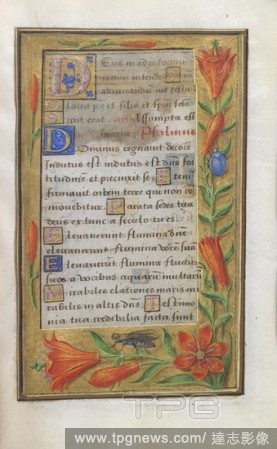 Deus in adiutorium
meum intende
ad adiuvandum me festi
Gloria pri et filio et spui san
sicut erat. an Assumpta est
maria Psalmus
Dominus regnavit decore
indutus est indutus est dns for
titudinem et precinxit se Eteni
firmavit orbem terre qui non co
movebitur Parata sedes tua
deus ex tunc a seculo tu es
Elevaverunt flumina dne
elevaverunt flumina vocem suam
Elevaverunt flumina fluctus
suos a vocibus aquarum multarum
Mirabiles elationes maris mi
rabilis in altis dns Testimo
nia tua credibilia facta sunt
TPG
www.tpgnews.com / 達志影像